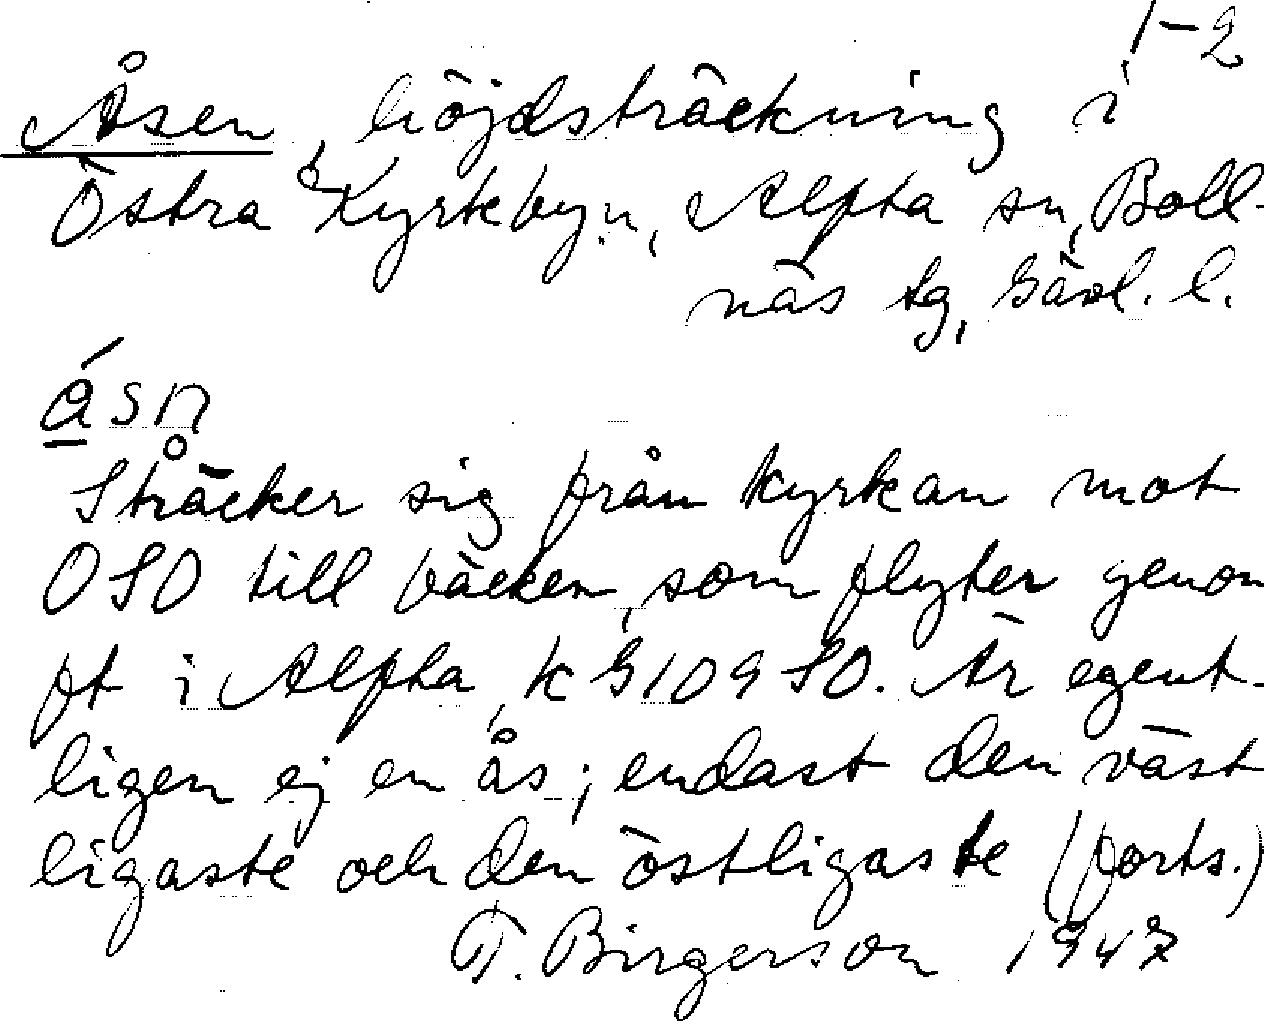 1-2
Åsen, höjdsträckning i
Östra Kyrkbyn, Alfta sn, Boll-
näs tg, Gävl. l.
åsn
Sträcker sig från kyrkan mot
OSO till bäcken, som flyter genom
ft i Alfta, k G 109 SO. Är egent-
ligen ej en ås; endast den väst
ligaste och den östligaste (forts.)
T. Birgerson 1947